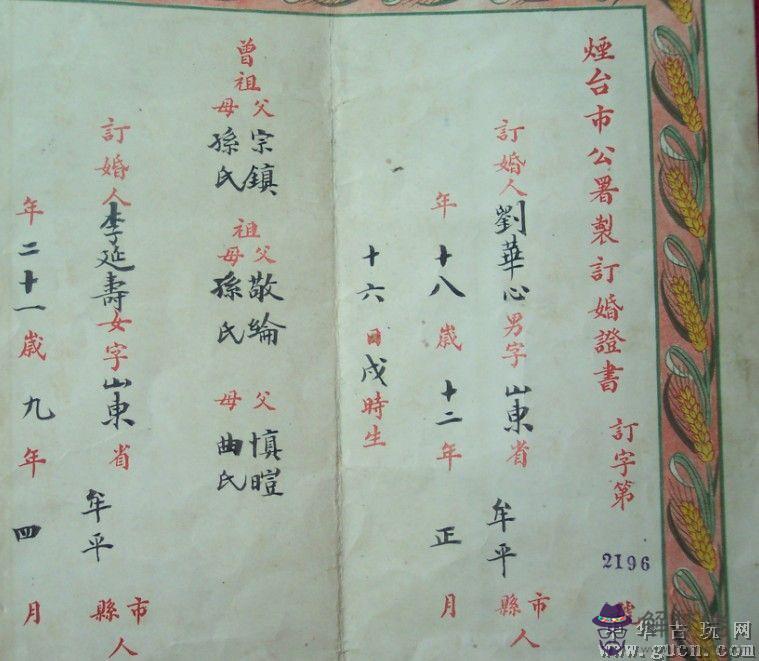 煙台市公署製訂婚證書 訂字第 2196 號
訂婚人劉華心男字山東省牟平市縣人
年十八歲十二年正月
十六日戌時生
曾祖父宗鎮 祖父敬綸 父慎暟
母孫氏 母孫氏 母曲氏
訂婚人李延壽女字山東省牟平市縣人
年二十一歲九年四月
華古玩网
www.gucn.com